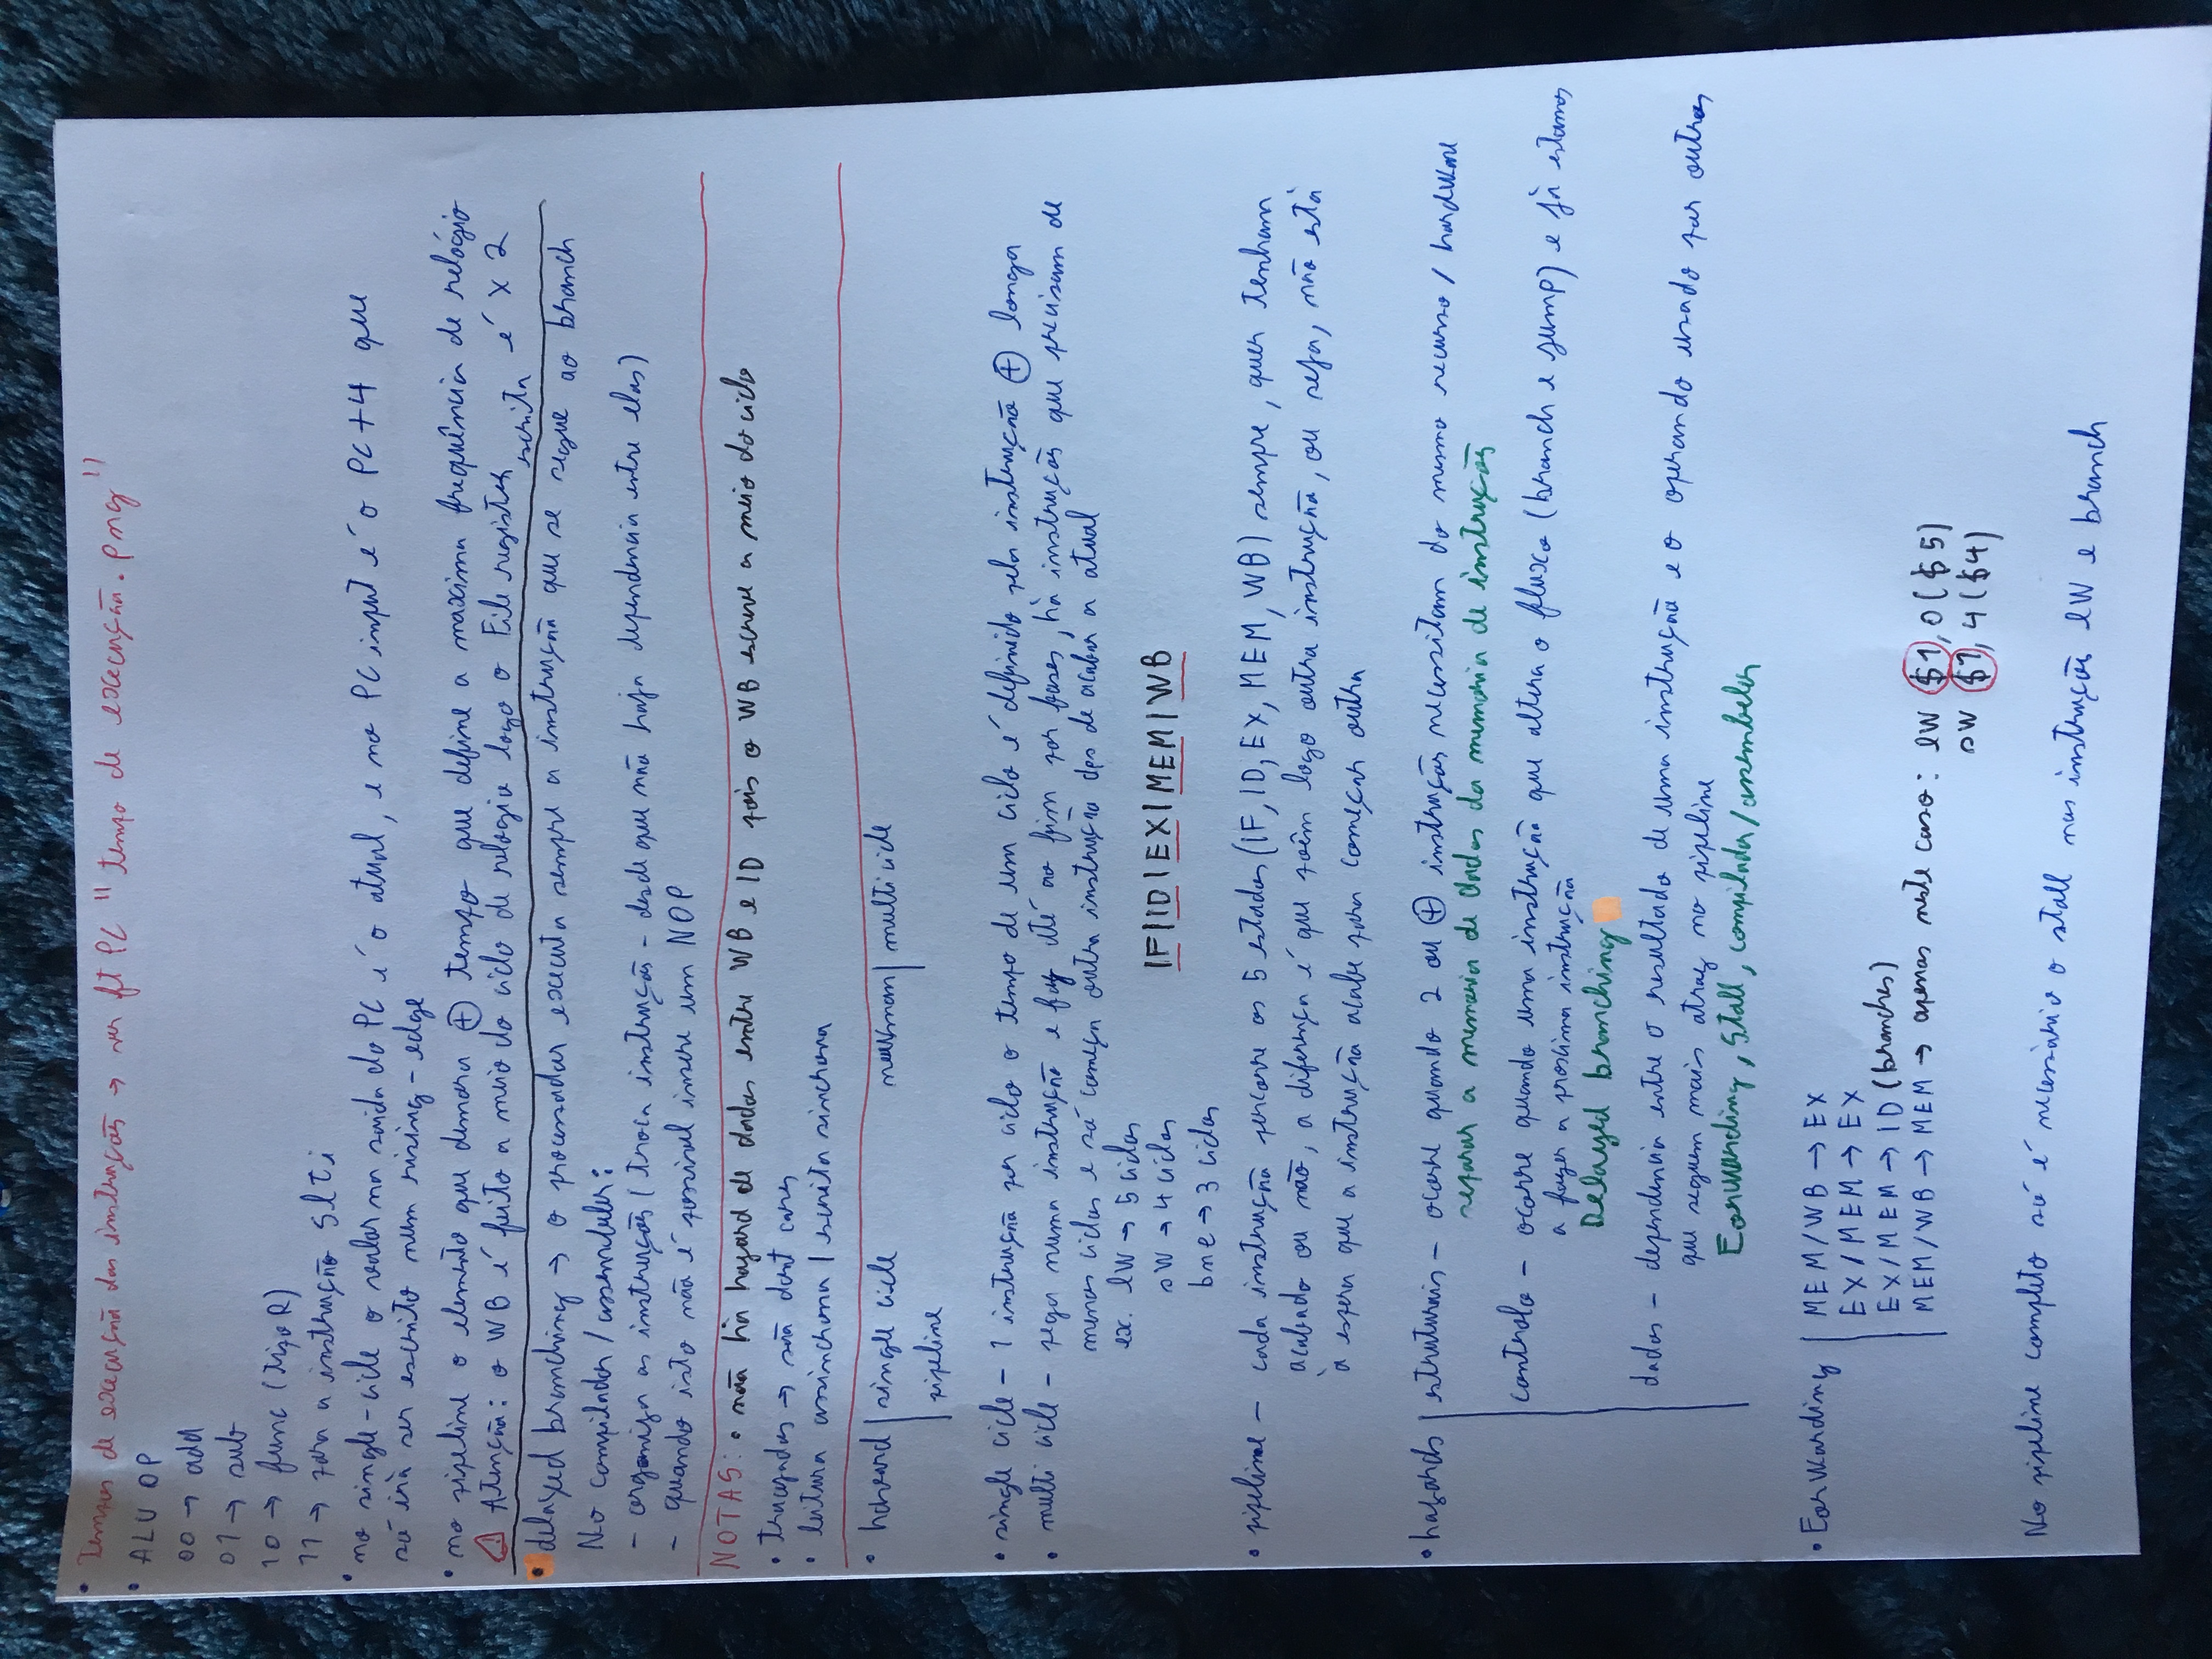 • Tempos de execução das instruções → ver ft PC "tempo de execução.png"
• ALU OP
00 → add
01 → sub
10 → func (tipo R)
11 → para a instrução slti
• no single-cicle o valor na saida do PC é o atual, e no PC input é o PC+4 que
só irá ser escrito num rising-edge
• no pipeline o elemento que demora ⊕ tempo que define a maxima frequência de relógio
⚠ Atenção: o WB é feito a meio do ciclo de relogio logo o File register escrita é x 2
• delayed branching → o processador executa sempre a instrução que se segue ao branch
No compilador/assembler:
- organiza as instruções (troca instrução - desde que não haja dependencia entre elas)
- quando isto não é possivel insere um NOP
NOTAS: • não há hazard de dados entre WB e ID pois o WB escreve a meio do ciclo
• tracejados → são dont cares
• leitura assinchrona | escrita sinchrona
• havard | single cicle neukman | multi cicle
pipeline
• single cicle - 1 instrução por ciclo o tempo de um ciclo é definido pela instrução ⊕ longa
• multi cicle - pega numa instrução e faz até ao fim por fases, há instruções que precisam de
menos ciclos e só começa outra instrução dps de acabar a atual
ex. lw → 5 ciclos
sw → 4 ciclos
IF | ID | EX | MEM | WB
bne → 3 ciclos
• pipeline - cada instrução percorre os 5 estados (IF, ID, EX, MEM, WB) sempre, quer tenham
acabado ou não, a diferença é que poêm logo outra instrução, ou seja, não está
à espera que a instrução acabe para começar outra
• hazards | estruturais - ocorre quando 2 ou ⊕ instruções necessitam do mesmo recurso / hardware
separar a memoria de dados da memoria de instruções
controlo - ocorre quando uma instrução que altera o fluxo (branch e jump) e já estamos
a fazer a proxima instrução
Delayed branching
dados - dependencia entre o resultado de uma instrução e o operando usado por outros
que seguem mais atraz no pipeline
Forwarding, Stall, compilador/assembelor
• Forwarding | MEM/WB → EX
EX/MEM → EX
EX/MEM → ID (branches)
MEM/WB → MEM → apenas neste caso: lw $1, 0($5)
sw $1, 4($4)
No pipeline completo só é necessário o stall nas instruções lw e branch